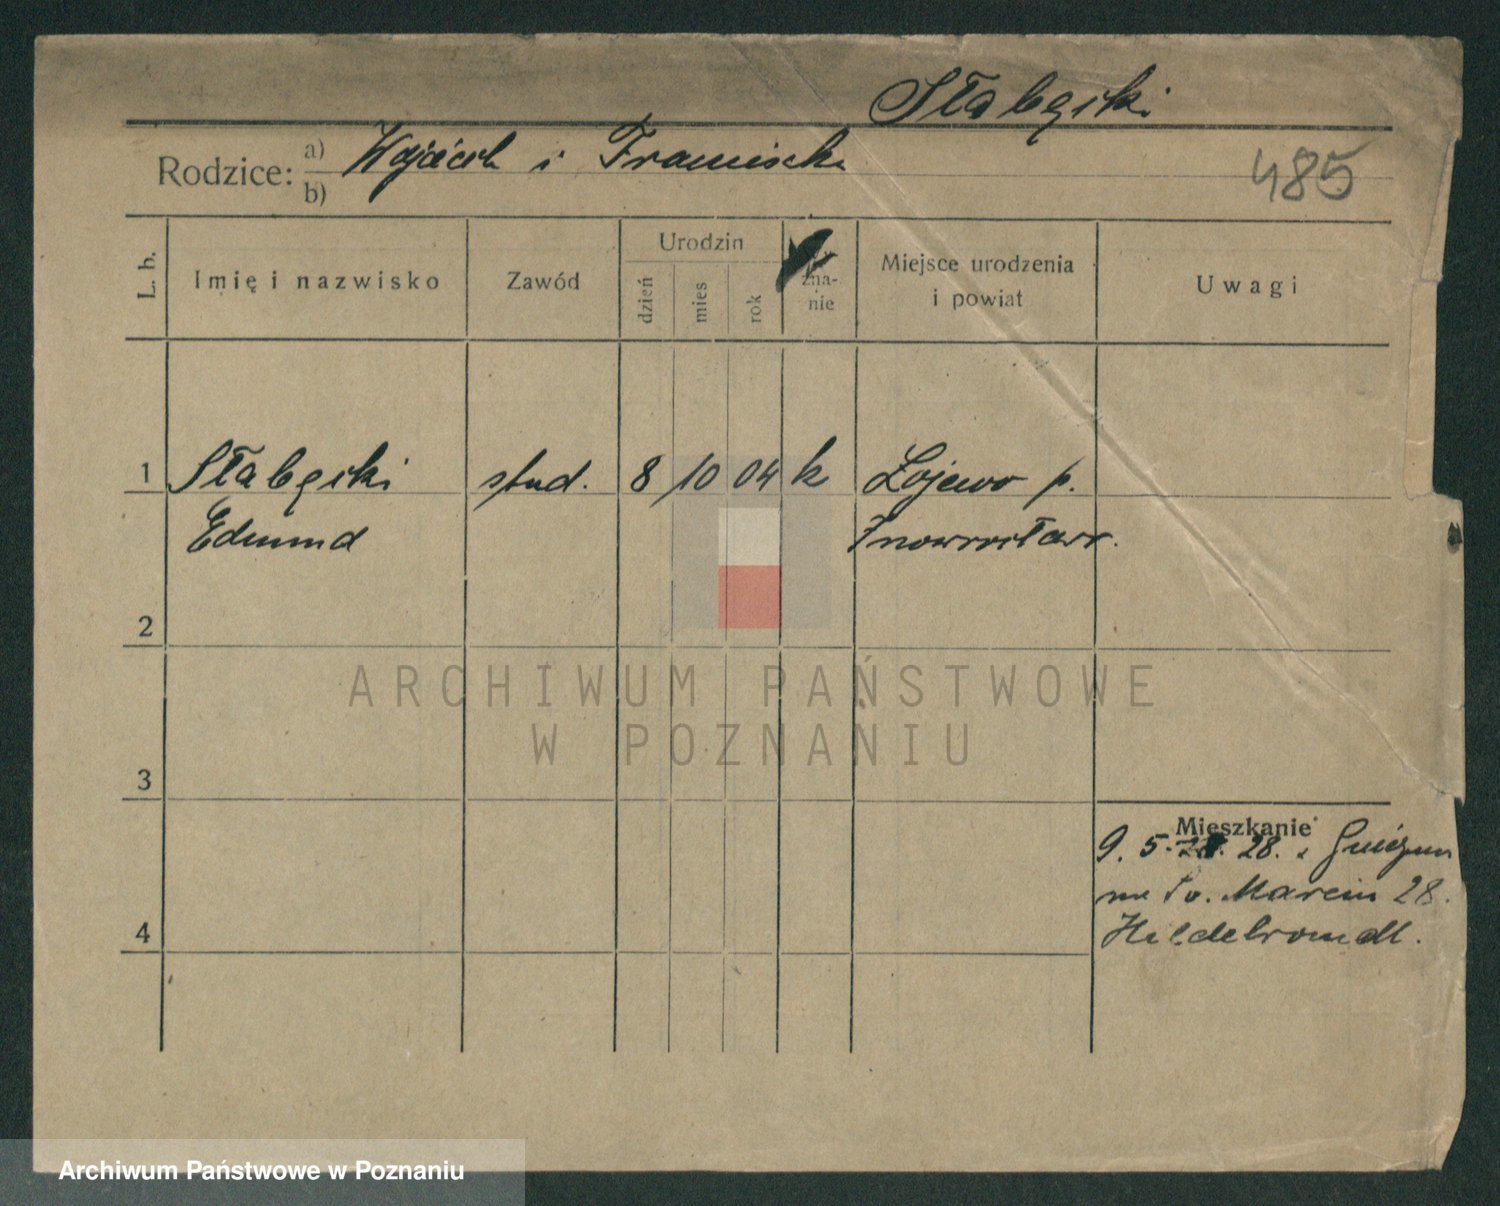 Słabęcki
Rodzice: a) Wojciech i Franciszka
b)
485
L. b.
Imię i nazwisko
Zawód
Urodzin
dzień
mies
rok
zna-
nie
Miejsce urodzenia
i powiat
Uwagi
1 Słabęcki stud. 8 10 04 k Łojewo p.
Edmund Inowrocław.
2
ARCHIWUM PAŃSTWOWE
W POZNANIU
3
Mieszkanie
9. 5. 28. z Gniezna
na Św. Marcin 28.
4
Hildebrandt.
Archiwum Państwowe w Poznaniu